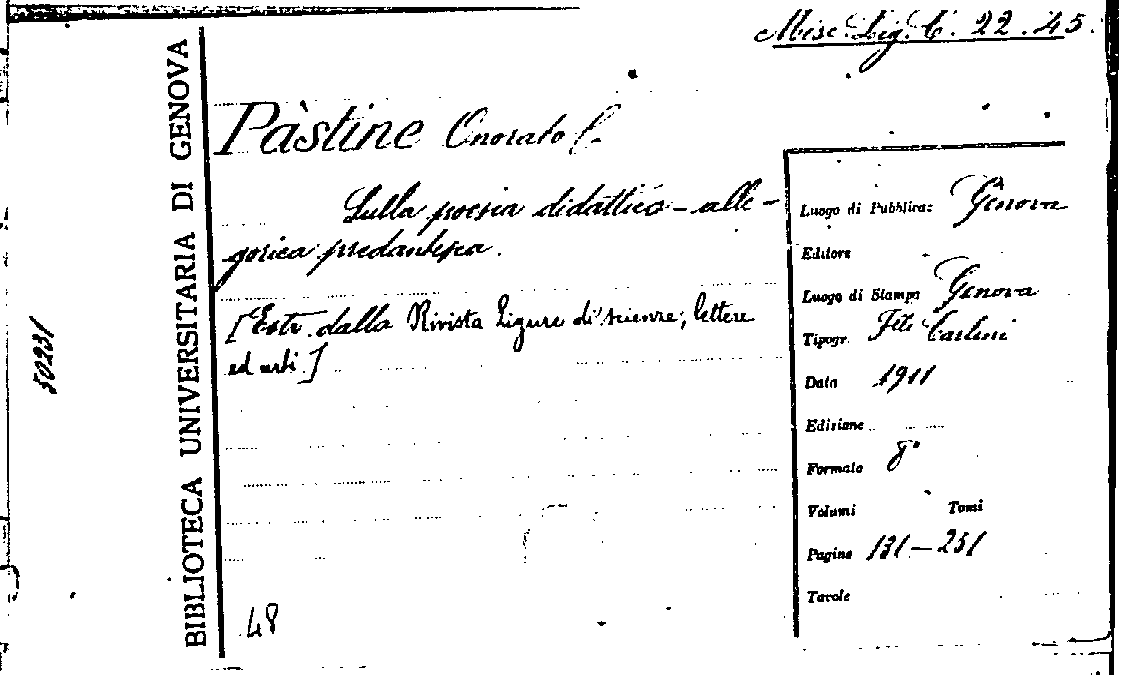 Misc. Lig. C. 22.45.
BIBLIOTECA UNIVERSITARIA DI GENOVA
50231
Pàstine Onorato
Sulla poesia didattico-alle-
gorica predantesca.
[Estr. dalla Rivista Ligure di scienze, lettere
ed arti.]
48
Luogo di Pubblicaz: Genova
Editore
Luogo di Stampa Genova
Tipogr. F.lli Carlini
Data 1911
Edizione
Formato 8°
Volumi Tomi
Pagine 131-251
Tavole